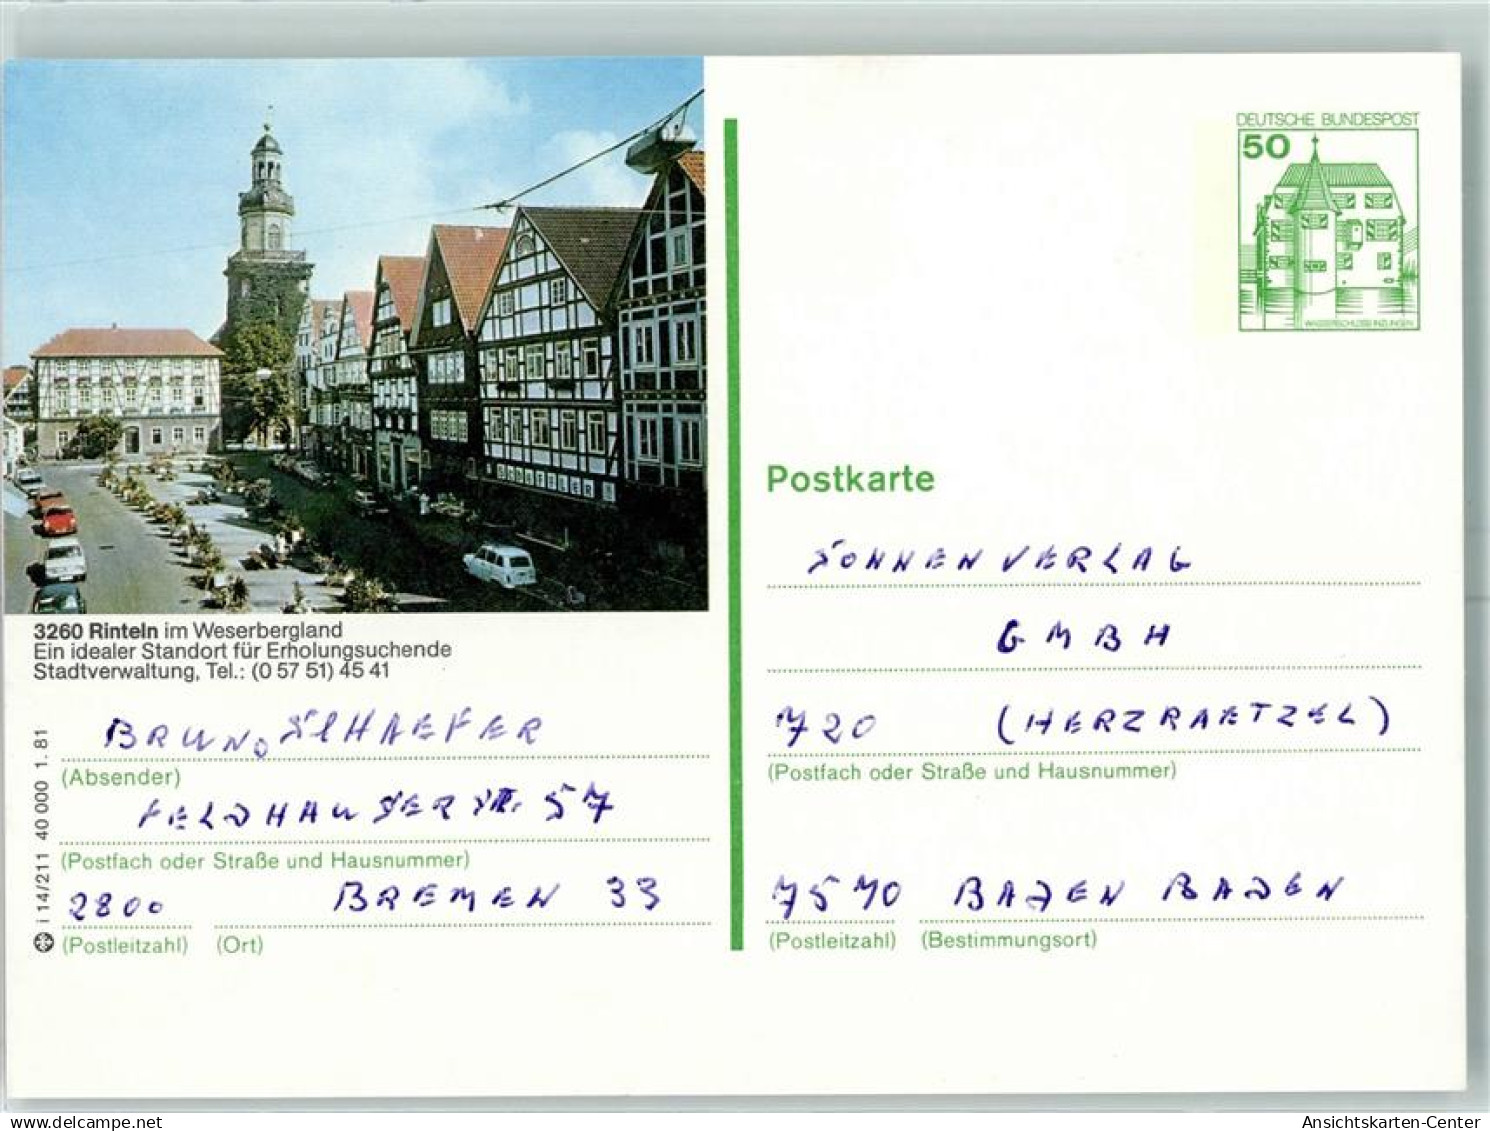 DEUTSCHE BUNDESPOST
50
WASSERSCHLOSS INZLINGEN
3260 Rinteln im Weserbergland
Ein idealer Standort für Erholungsuchende
Stadtverwaltung, Tel.: (0 57 51) 45 41
Postkarte
SONNENVERLAG
GMBH
720 (HERZRAETZEL)
(Postfach oder Straße und Hausnummer)
7570 BADEN BADEN
(Postleitzahl) (Bestimmungsort)
BRUNO SCHAEFER
(Absender)
FELDHAUSER STR. 57
(Postfach oder Straße und Hausnummer)
2800 BREMEN 33
(Postleitzahl) (Ort)
i 14/211 40 000 1.81
oldthing.de
Ansichtskarten-Center